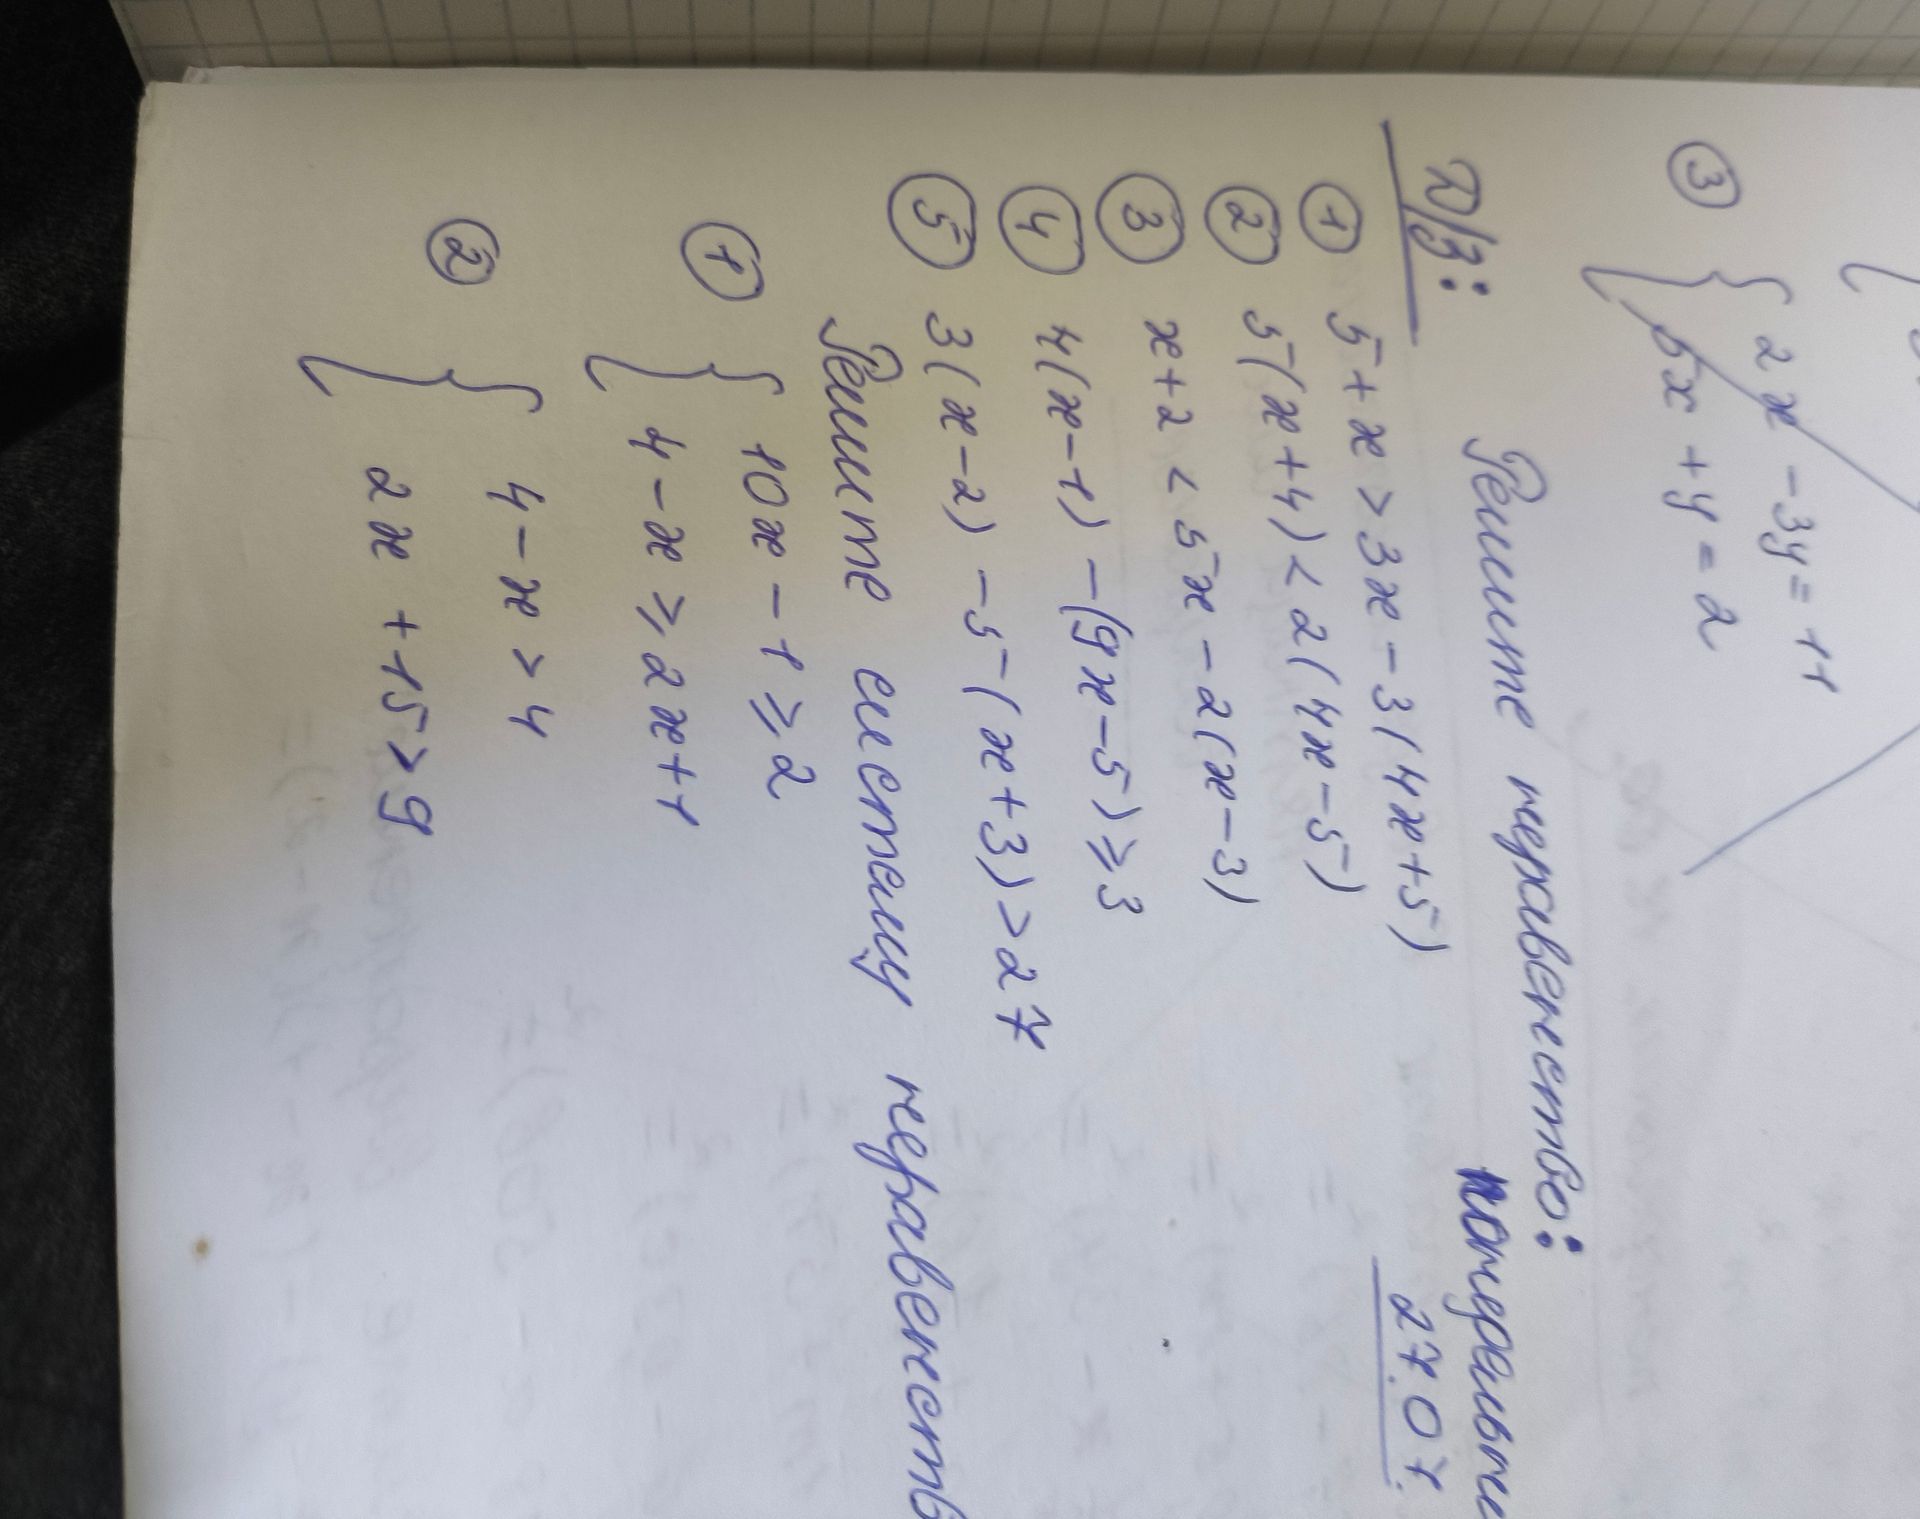 ③ { 2x - 3y = 11
5x + y = 2
Д/З: Решите неравенство: понедельни
27.07.
① 5 + x > 3x - 3(4x + 5)
② 5(x + 4) < 2(4x - 5)
③ x + 2 < 5x - 2(x - 3)
④ 4(x - 1) - (9x - 5) ≥ 3
⑤ 3(x - 2) - 5(x + 3) > 27
Решите систему неравенств
① { 10x - 1 ≥ 2
4 - x ≥ 2x + 1
② { 4 - x > 4
2x + 15 > 9